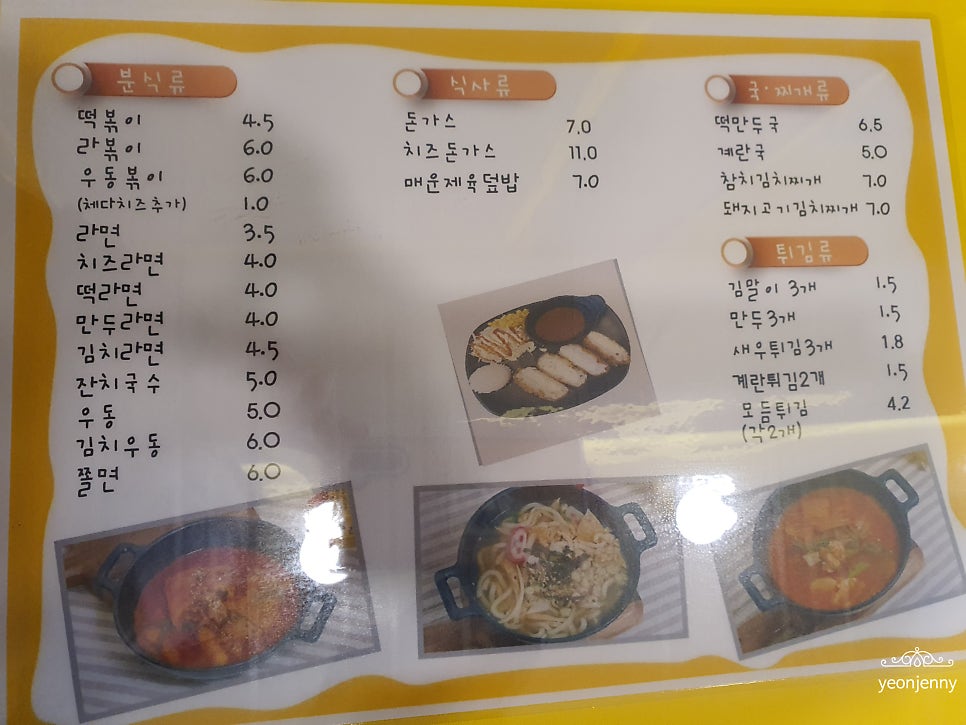 분식류
떡볶이 4.5
라볶이 6.0
우동볶이 6.0
(체다치즈추가) 1.0
라면 3.5
치즈라면 4.0
떡라면 4.0
만두라면 4.0
김치라면 4.5
잔치국수 5.0
우동 5.0
김치우동 6.0
쫄면 6.0
식사류
돈가스 7.0
치즈돈가스 11.0
매운제육덮밥 7.0
국·찌개류
떡만두국 6.5
계란국 5.0
참치김치찌개 7.0
돼지고기김치찌개 7.0
튀김류
김말이 3개 1.5
만두3개 1.5
새우튀김3개 1.8
계란튀김2개 1.5
모듬튀김 4.2
(각2개)
yeonjenny